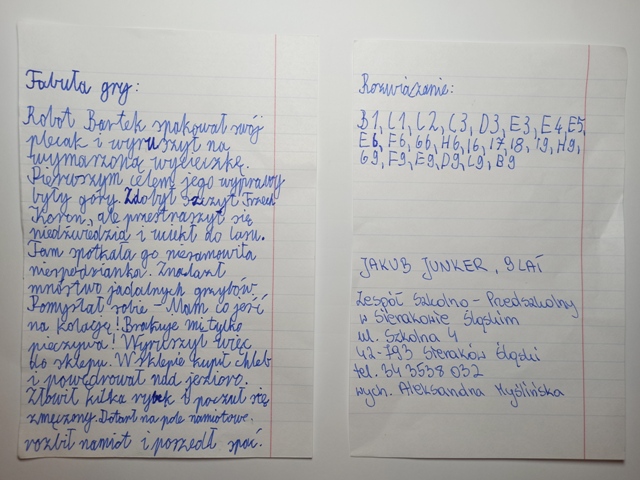 Fabuła gry:
Robot Bartek spakował swój
plecak i wyruszył na
wymarzoną wycieczkę.
Pierwszym celem jego wyprawy
były góry. Zdobył szczyt Trzech
Koron, ale przestraszył się
niedźwiedzia i uciekł do lasu.
Tam spotkała go niesamowita
niespodzianka. Znalazł
mnóstwo jadalnych grzybów.
Pomyślał sobie - Mam co jeść
na kolację! Brakuje mi tylko
pieczywa! Wyruszył więc
do sklepu. W sklepie kupił chleb
i powędrował nad jezioro.
Złowił kilka rybek i poczuł się
zmęczony. Dotarł na pole namiotowe.
rozbił namiot i poszedł spać.
Rozwiązanie:
B1, C1, C2, C3, D3, E3, E4, E5,
E6, F6, G6, H6, I6, I7, I8, I9, H9,
G9, F9, E9, D9, C9, B9
JAKUB JUNKER, 9 LAT
Zespół Szkolno - Przedszkolny
w Sierakowie Śląskim
ul. Szkolna 4
42-793 Sieraków Śląski
tel. 34 3538 032
wych. Aleksandra Myślińska